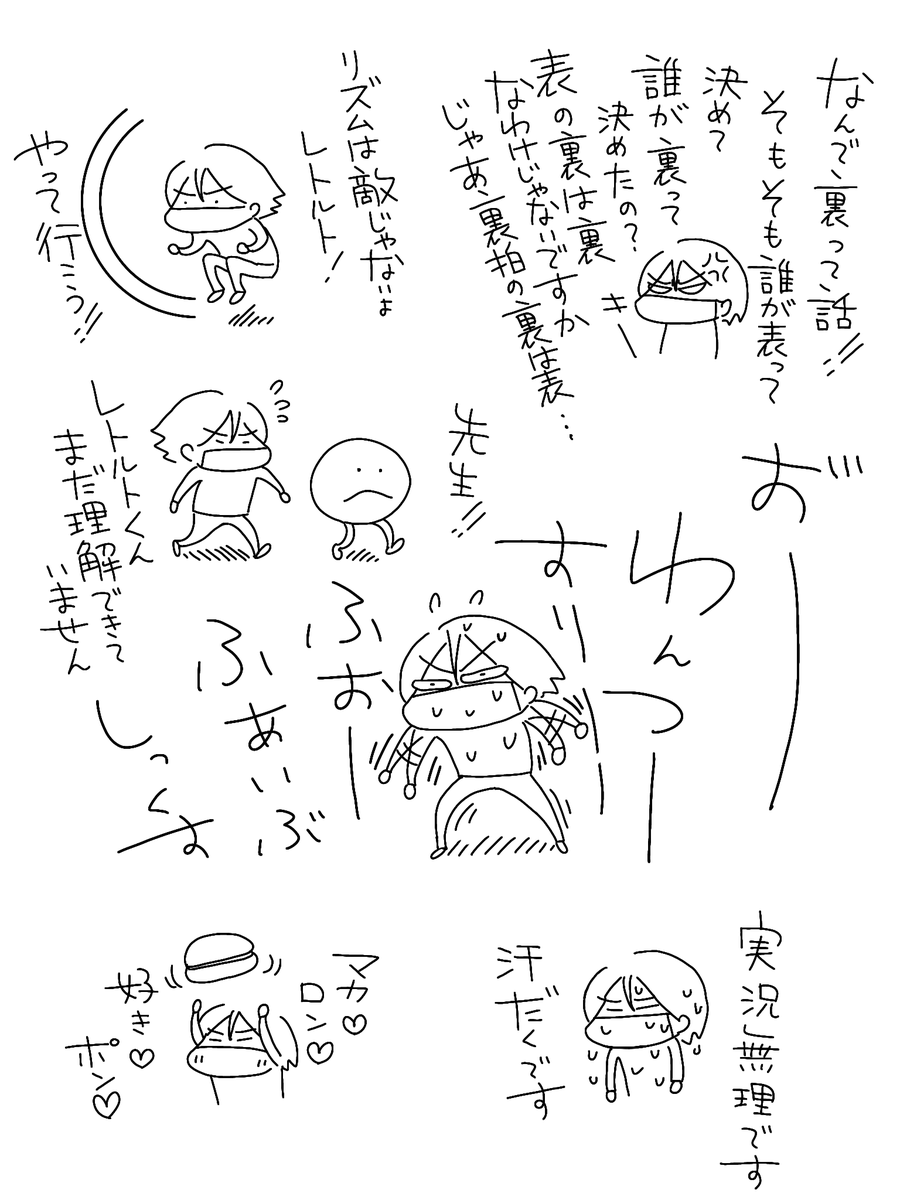 なんで裏って話!!
そもそも誰が表って
決めて
誰が裏って
決めたの?
表の裏は裏
なわけじゃないですか
じゃあ裏拍の裏は表…
キー
リズムは敵じゃないよ
レトルト!
やって行こう!!
先生!!
レトルトくん
まだ理解できて
いません
お゛ー
わんつー
すりー
ふぉー
ふぁいぶ
しっくす
実況無理です
汗だくです
マカ♡
ロン♡
好き♡
ポン♡